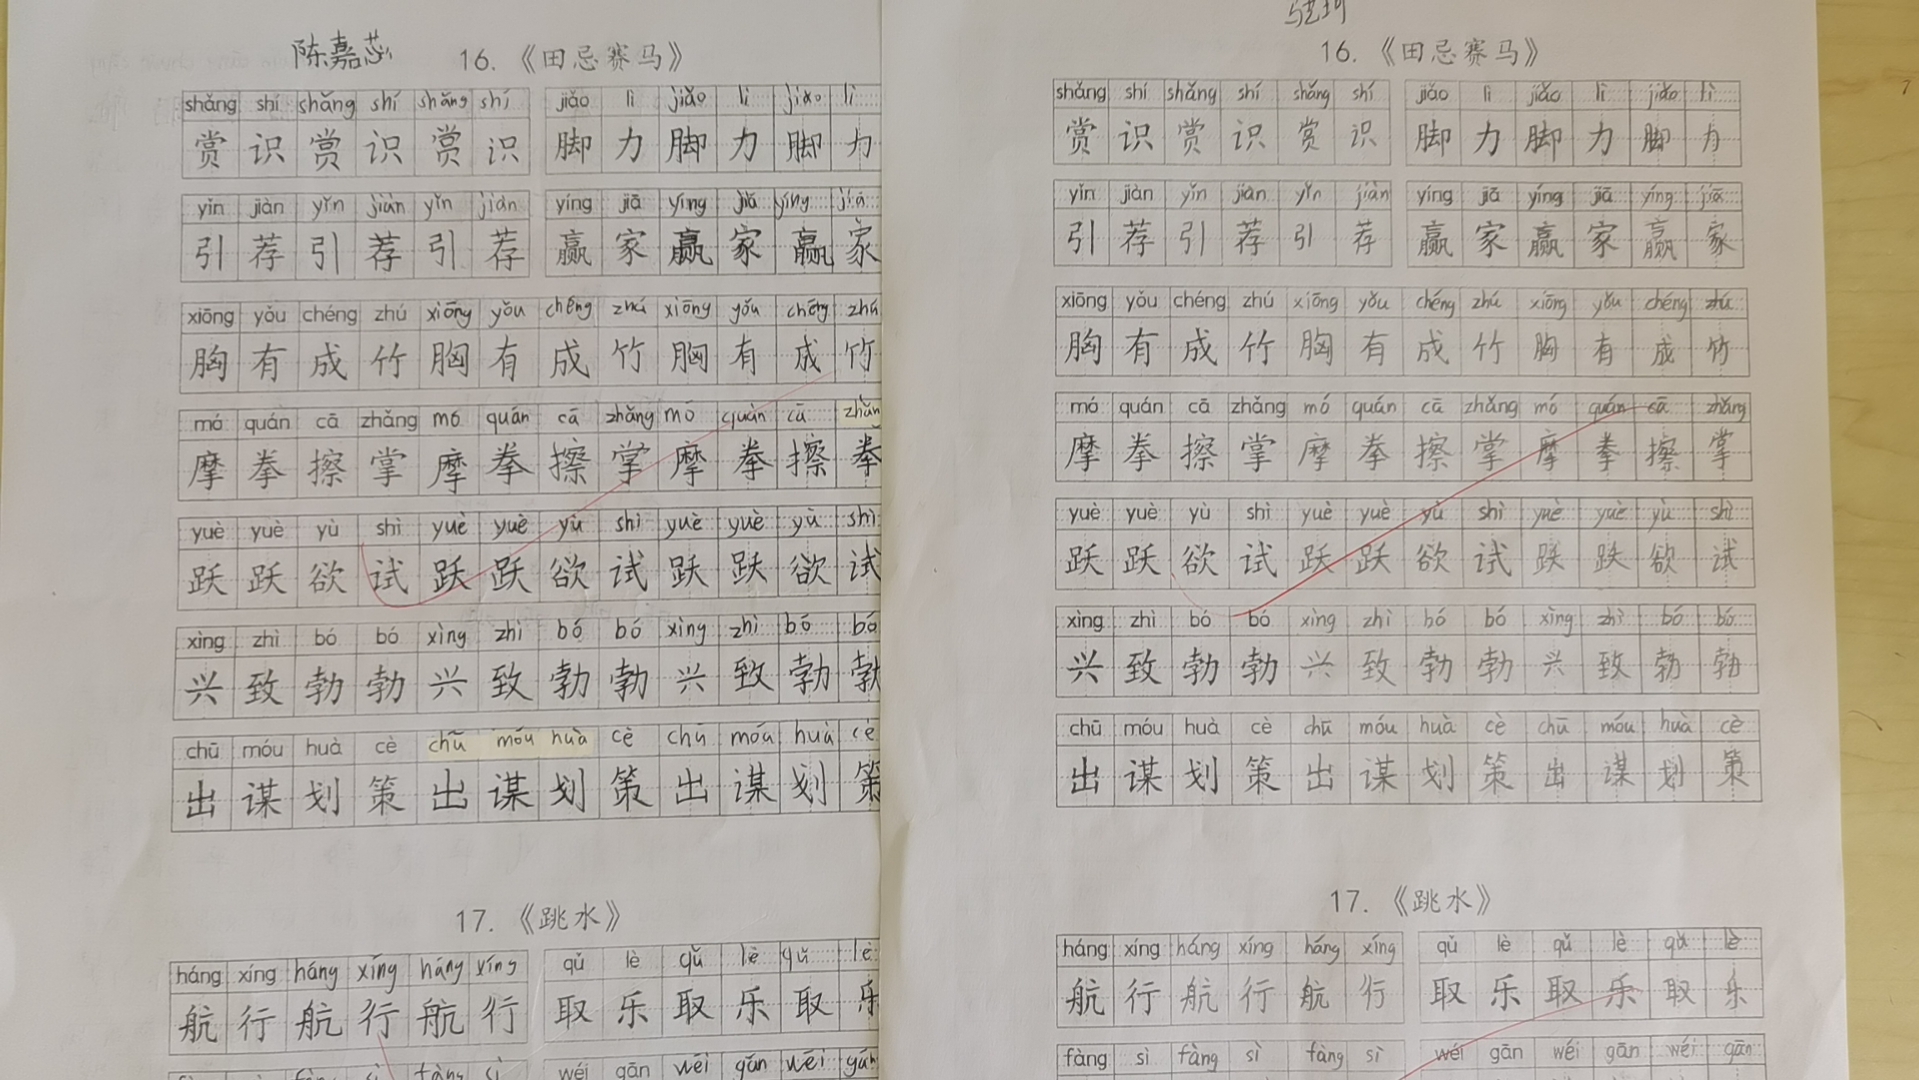 陈嘉蕊
16.《田忌赛马》
shǎng shí shǎng shí shǎng shí jiǎo lì jiǎo lì jiǎo lì
赏识赏识赏识 脚力脚力脚力
yǐn jiàn yǐn jiàn yǐn jiàn yíng jiā yíng jiā yíng jiā
引荐引荐引荐 赢家赢家赢家
xiōng yǒu chéng zhú xiōng yǒu chéng zhú xiōng yǒu chéng zhú
胸有成竹胸有成竹胸有成竹
mó quán cā zhǎng mó quán cā zhǎng mó quán cā zhǎn
摩拳擦掌摩拳擦掌摩拳擦拳
yuè yuè yù shì yuè yuè yù shì yuè yuè yù shì
跃跃欲试跃跃欲试跃跃欲试
xìng zhì bó bó xìng zhì bó bó xìng zhì bó bó
兴致勃勃兴致勃勃兴致勃勃
chū móu huà cè chū móu huà cè chū móu huà cè
出谋划策出谋划策出谋划策
17.《跳水》
háng xíng háng xíng háng xíng qǔ lè qǔ lè qǔ lè
航行航行航行 取乐取乐取乐
wéi gān wéi gān wéi gān
16.《田忌赛马》
shǎng shí shǎng shí shǎng shí jiǎo lì jiǎo lì jiǎo lì
赏识赏识赏识 脚力脚力脚力
yǐn jiàn yǐn jiàn yǐn jiàn yíng jiā yíng jiā yíng jiā
引荐引荐引荐 赢家赢家赢家
xiōng yǒu chéng zhú xiōng yǒu chéng zhú xiōng yǒu chéng zhú
胸有成竹胸有成竹胸有成竹
mó quán cā zhǎng mó quán cā zhǎng mó quán cā zhǎng
摩拳擦掌摩拳擦掌摩拳擦掌
yuè yuè yù shì yuè yuè yù shì yuè yuè yù shì
跃跃欲试跃跃欲试跃跃欲试
xìng zhì bó bó xìng zhì bó bó xìng zhì bó bó
兴致勃勃兴致勃勃兴致勃勃
chū móu huà cè chū móu huà cè chū móu huà cè
出谋划策出谋划策出谋划策
17.《跳水》
háng xíng háng xíng háng xíng qǔ lè qǔ lè qǔ lè
航行航行航行 取乐取乐取乐
fàng sì fàng sì fàng sì wéi gān wéi gān wéi gān